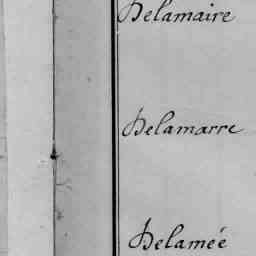 Delamaire
Delamarre
Delamée